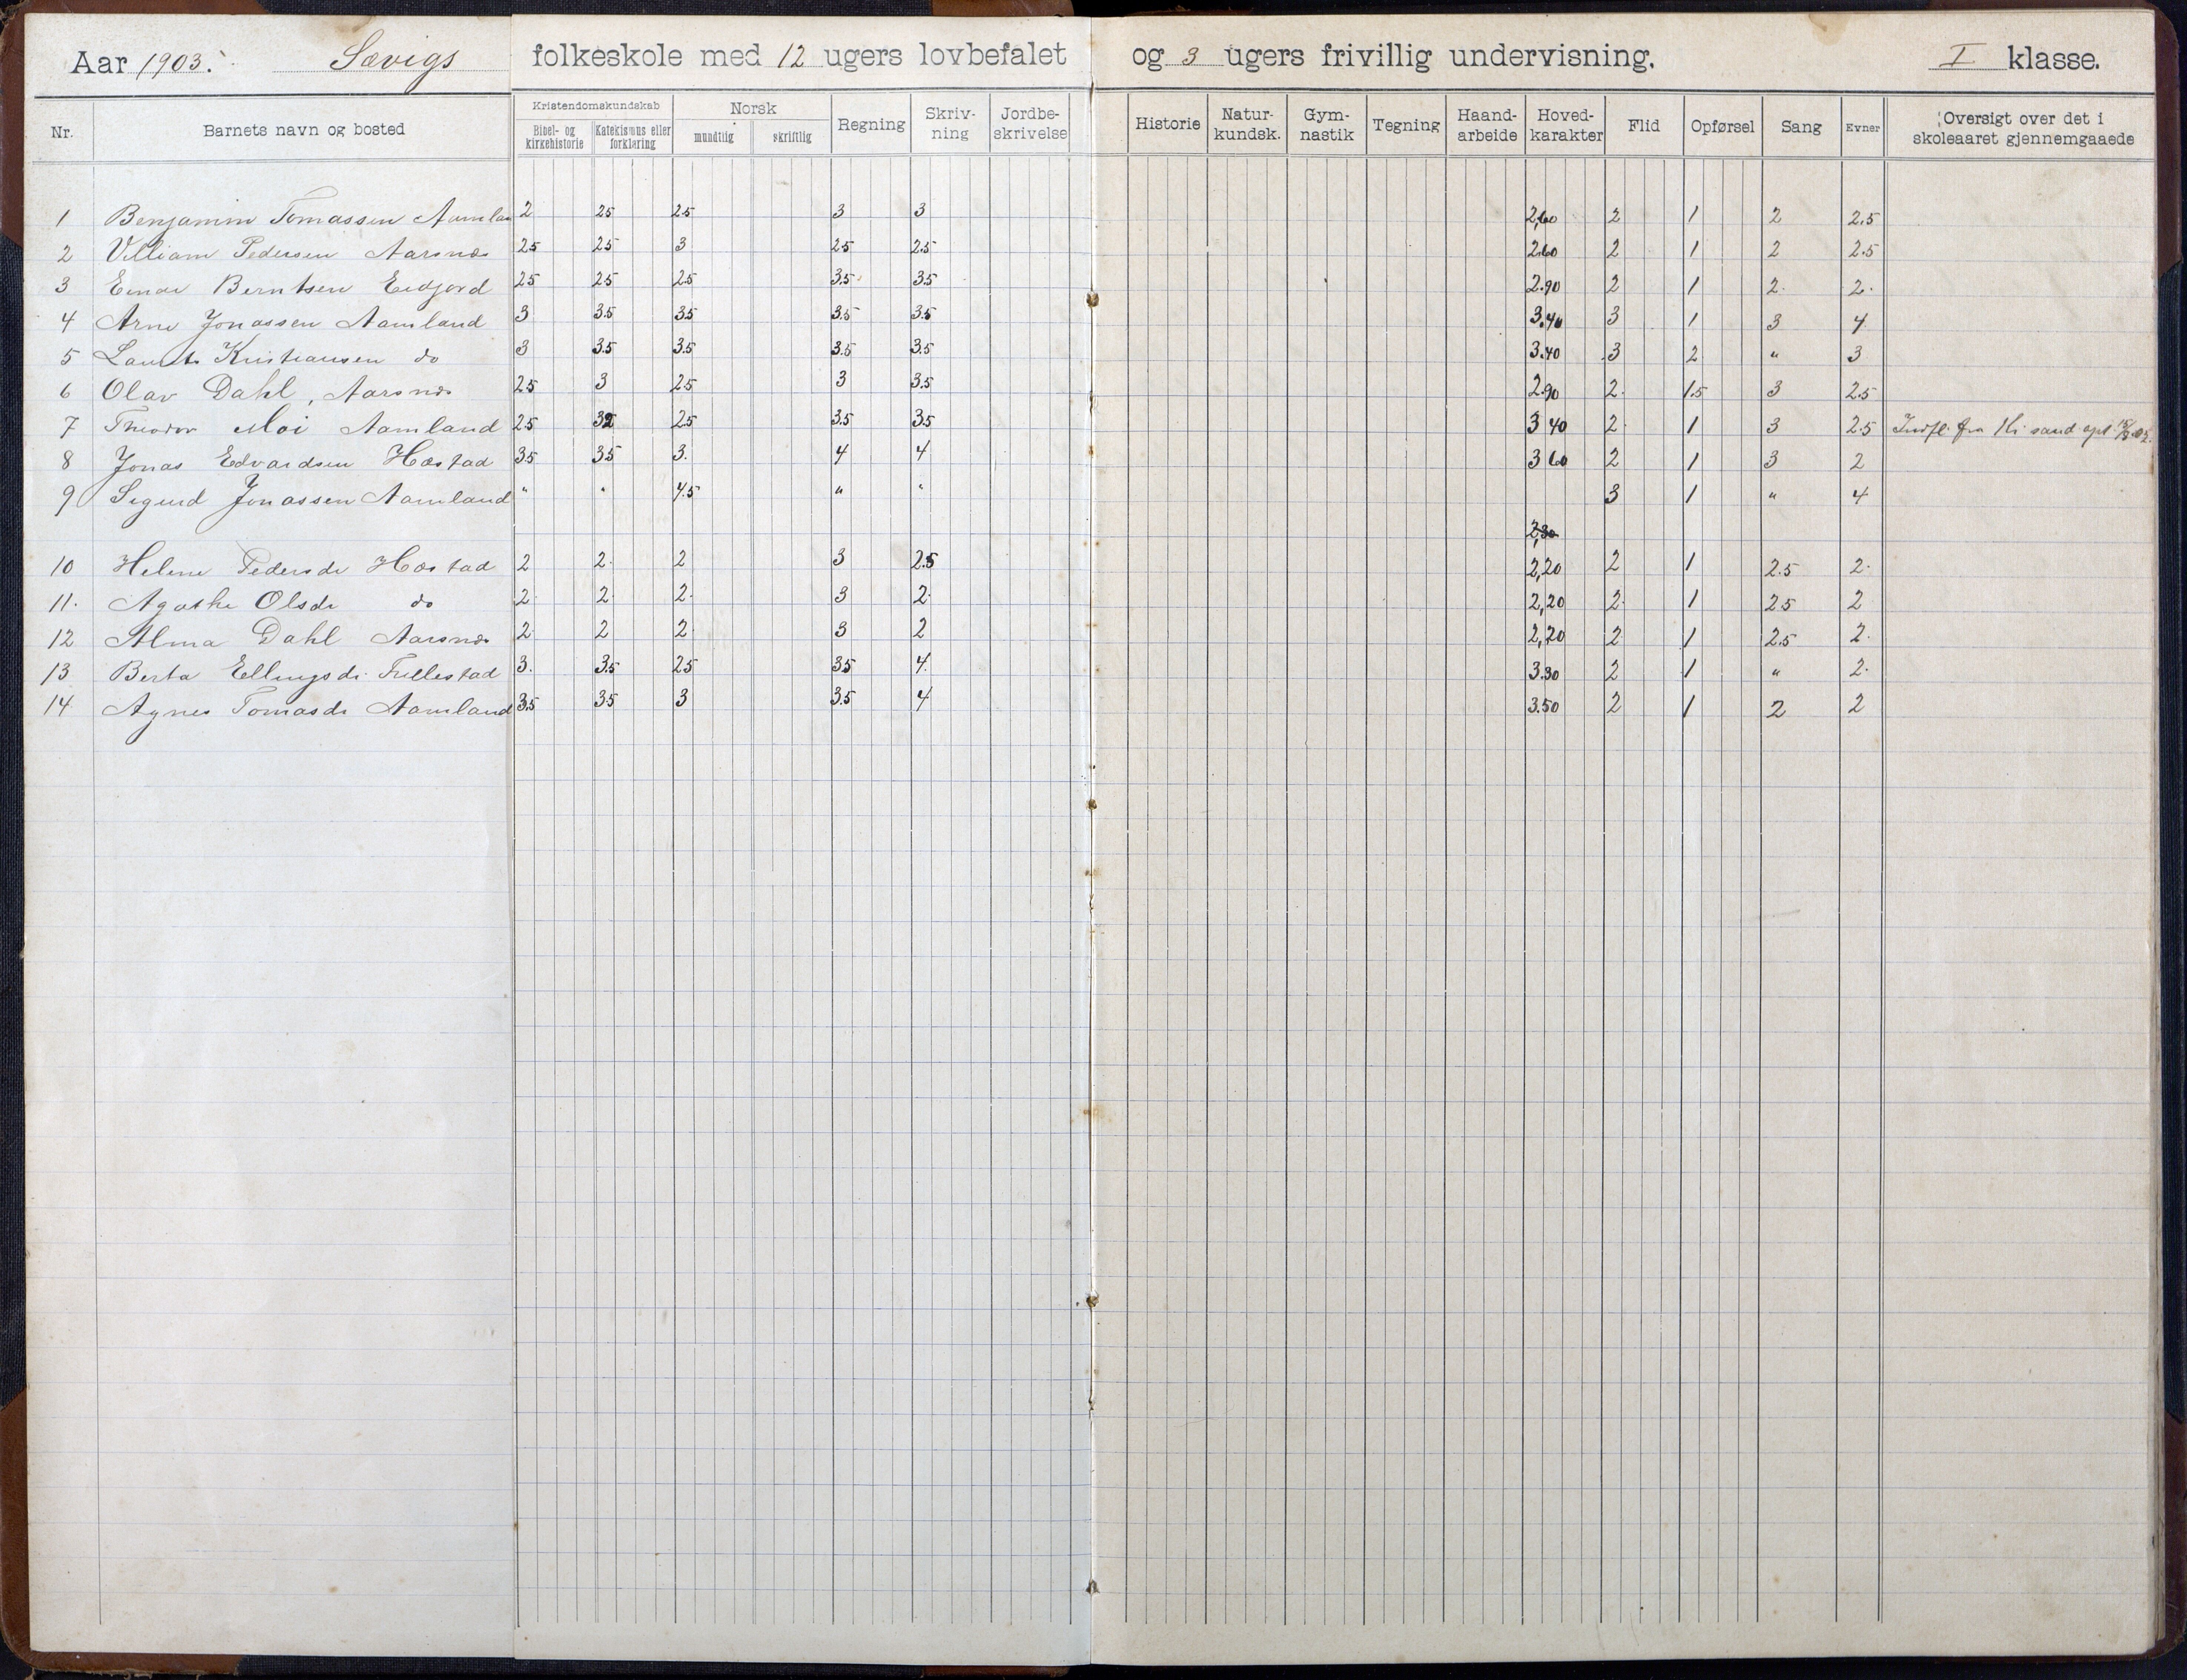 Aar 1903. Sævigs folkeskole med 12 ugers lovbefalet og 3 ugers frivillig undervisning. I klasse.
Nr. Barnets navn og bosted Kristendomskundskab Bibel- og kirkehistorie Katekismus eller forklaring Norsk mundtlig skriftlig Regning Skriv-ning Jordbe-skrivelse Historie Natur-kundsk. Gym-nastik Tegning Haand-arbeide Hoved-karakter Flid Opførsel Sang Evner Oversigt over det i skoleaaret gjennemgaaede
1 Benjamin Tomassen Aamlan 2 25 25 3 3 2,60 2 1 2 2.5
2 Villiam Pedersen Aarsnes 25 25 3 25 25 260 2 1 2 2.5
3 Einar Berntsen Eidjord 25 25 25 3.5 35 2.90 2 1 2. 2.
4 Arne Jonassen Aamland 3 3.5 35 3.5 3.5 3.40 3 1 3 4
5 Kristiansen do 3 3.5 3.5 3.5 3.5 3.40 3 2 " 3
6 Olav Dahl, Aarsnes 25 3 25 3 3.5 2.90 2. 1.5 3 2.5
7 Theodor Moi Aamland 25 25 3.5 35 3 40 2. 1 3 2.5 Indfl. fra Kr sand
8 Jonas Edvardsen Hæstad 35 35 3. 4 4 3 60 2 1 3 2
9 Sigurd Jonassen Aamland " " 4.5 " " 3 1 " 4
2,30
10 Helene Pedersdr Hæstad 2 2. 2 3 2.5 2,20 2 1 2.5 2.
11. Agathe Olsdr do 2. 2. 2. 3 2. 2,20 2. 1 25 2
12 Alma Dahl Aarsnes 2. 2 2. 3 2 2,20 2 1 2.5 2.
13 Berta Ellingsdr. Trellestad 3. 3.5 25 35 4. 3.30 2 1 " 2.
14 Agnes Tomasdr Aamland 3.5 35 3 3.5 4 3.50 2 1 2 2